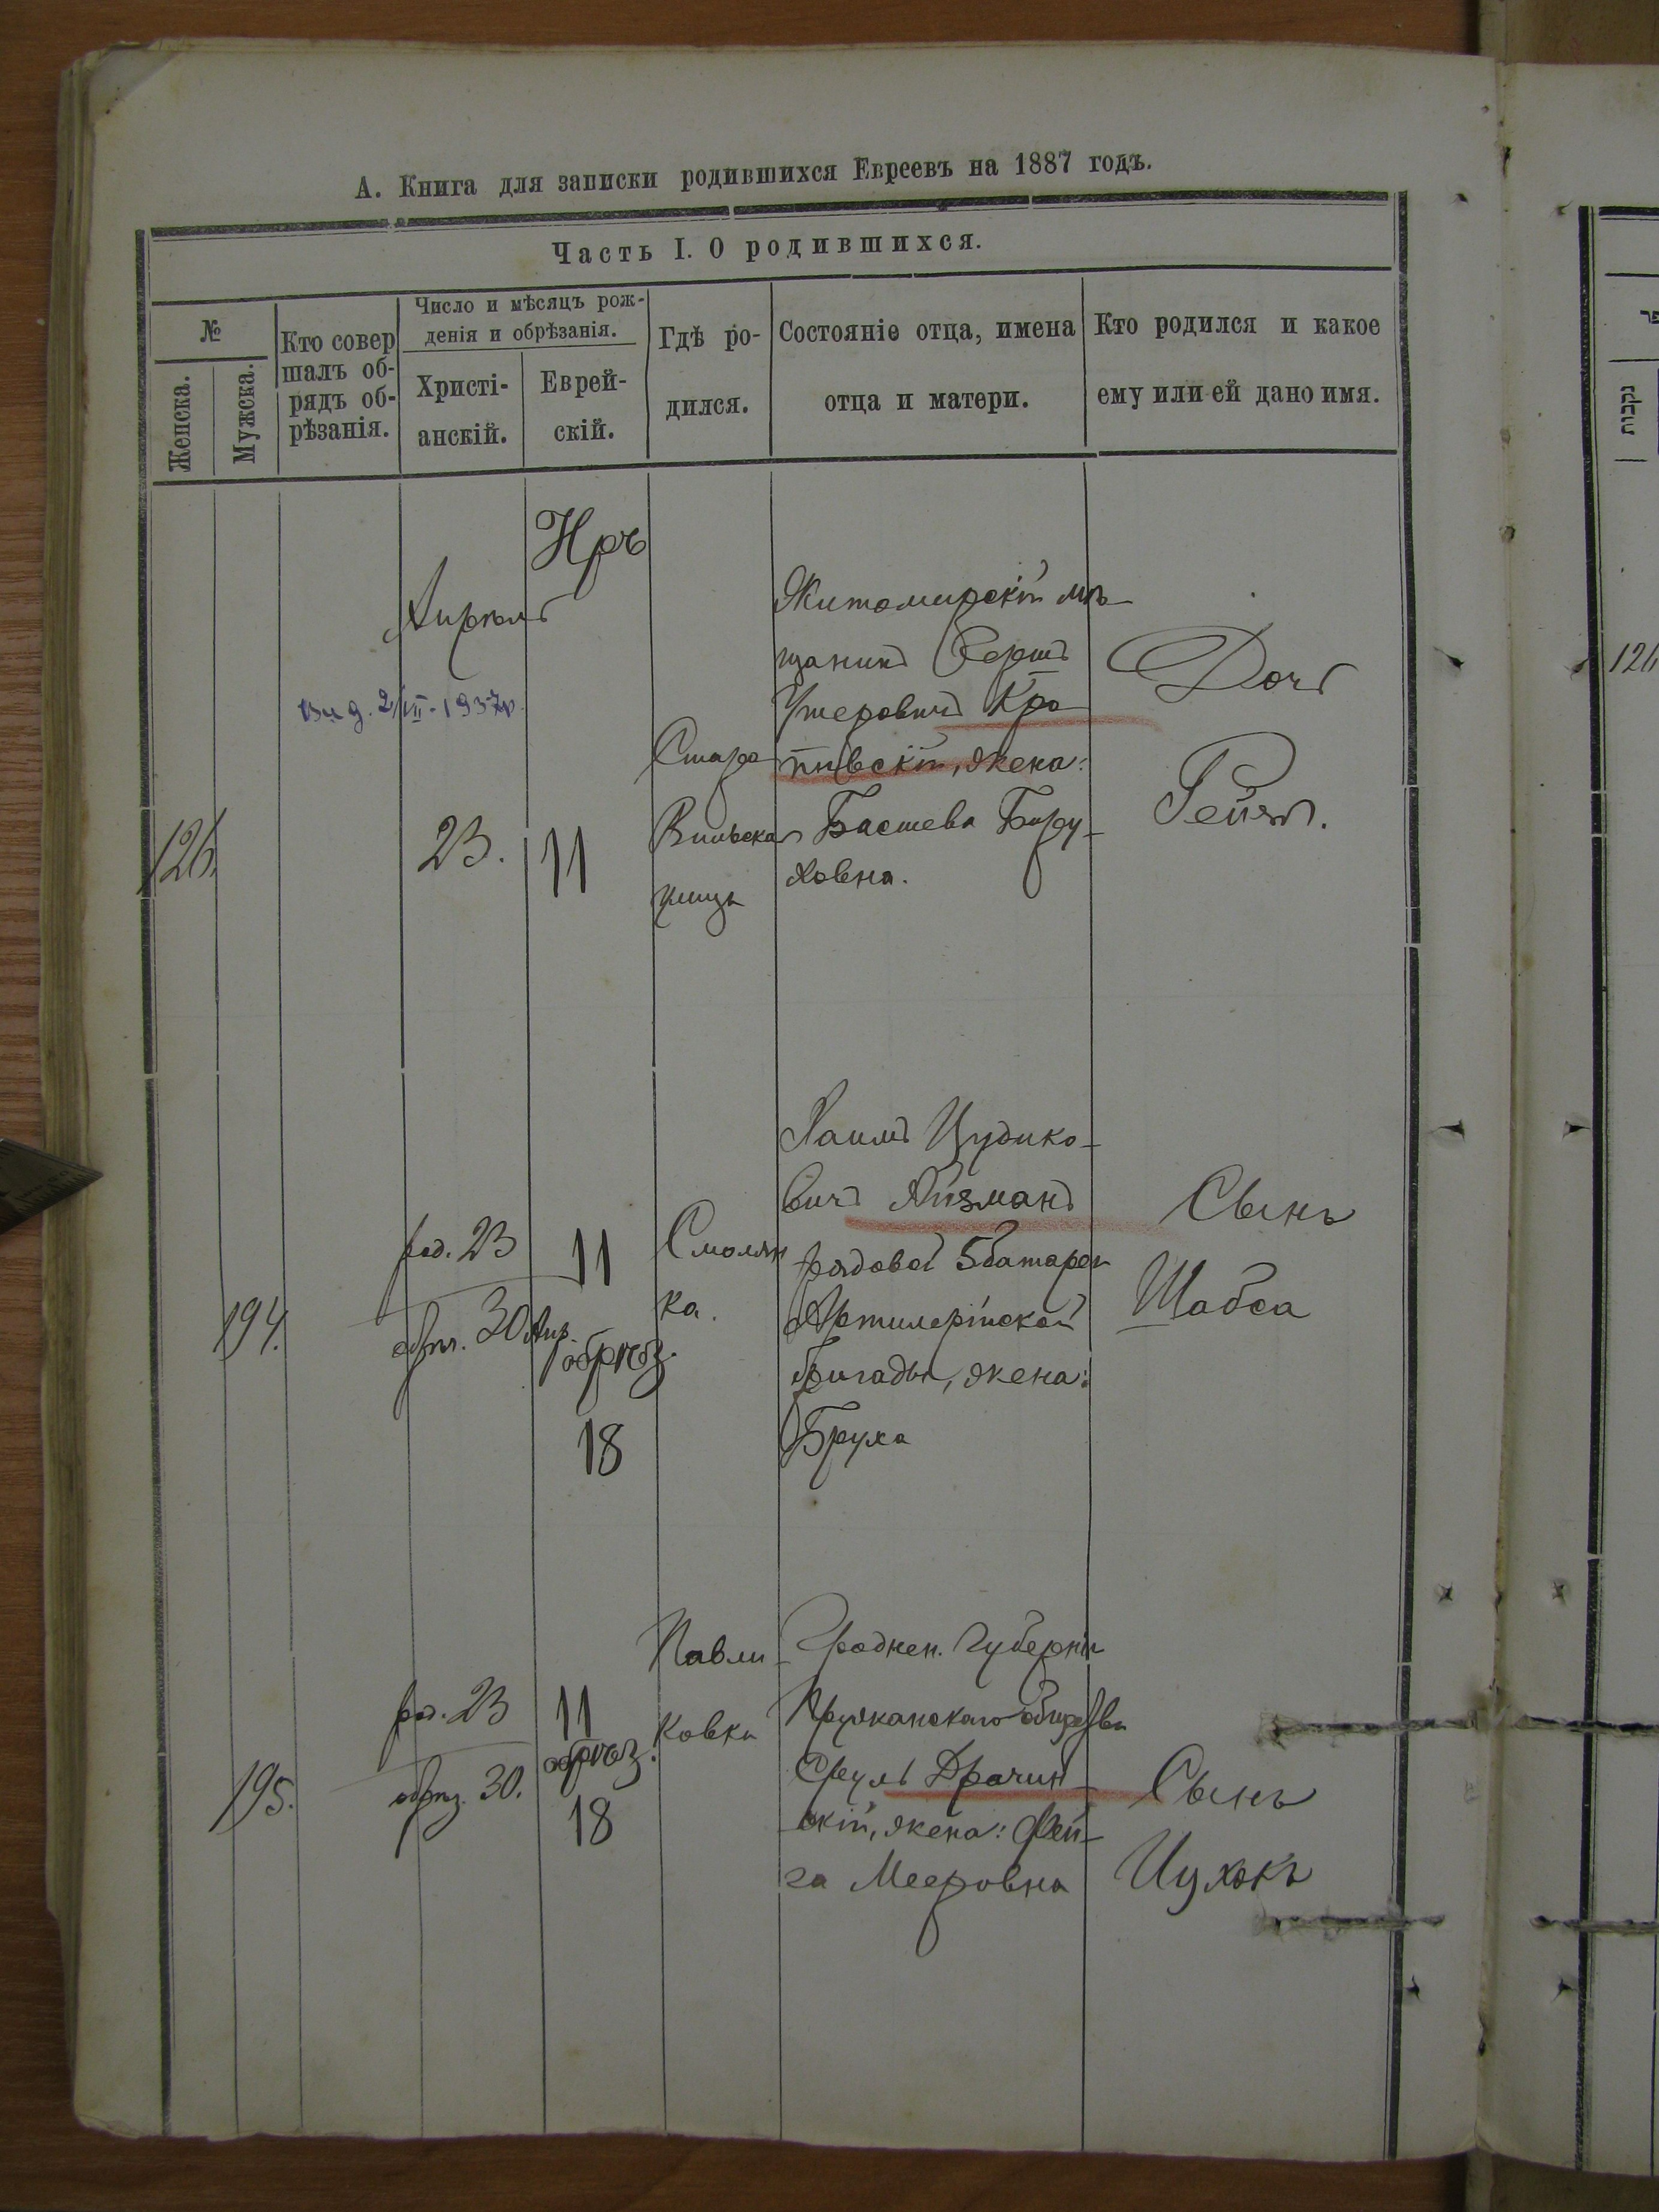 А. Книга для записки родившихся Евреевъ на 1887 годъ.
Часть I. О родившихся.
№
Женска.
Мужска.
Кто совер
шалъ об-
рядъ об-
рѣзанія.
Число и мѣсяцъ рож-
денія и обрѣзанія.
Христі-
анскій.
Еврей-
скій.
Гдѣ ро-
дился.
Состояніе отца, имена
отца и матери.
Кто родился и какое
ему или ей дано имя.
נקבות
Иръ
Апрѣль
Вид. 2/VII-1937р.
126.
23.
11
Старо
Вильская
улица
Житомирскій мѣ-
щанинъ Герш
Ушеровичъ Кро
пивскій, жена:
Басшева Бору-
ховна.
Дочь
Рейзя.
126
194.
род. 23
обрѣз. 30 Апр.
11
обрѣз.
18
Смолян
ка.
Хаимъ Цудико-
вичъ Айзманъ
рядовой 5 батареи
Артилерійской
бригады, жена:
Бруха
Сынъ
Шабса
195.
род. 23
обрѣз. 30.
11
обрѣз.
18
Павли-
ковка
Гроднен. Губерніи
Пружанскаго общества
Сруль Драчин-
скій, жена: Фей-
га Мееровна
Сынъ
Ицхокъ